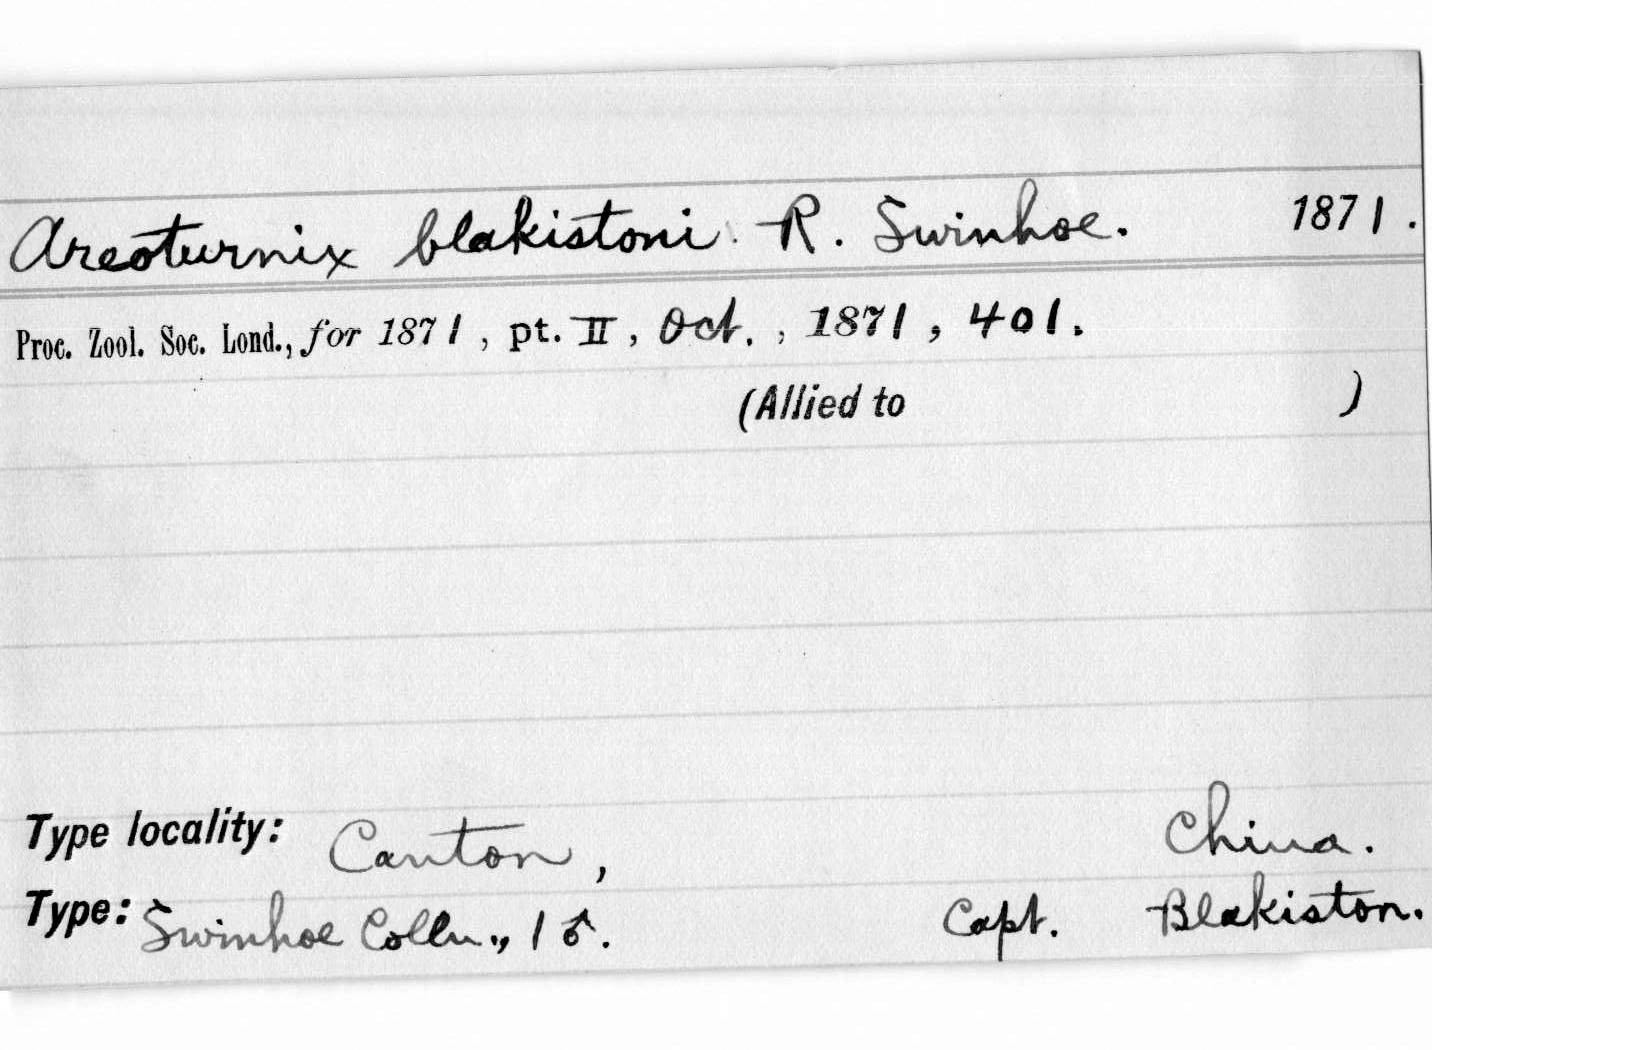 Areoturnix blakistoni R. Swinhoe. 1871.
Proc. Zool. Soc. Lond., for 1871, pt. II, Oct., 1871, 401.
(Allied to )
Type locality: Canton, China.
Type: Swinhoe Colln., 1 ♂. Capt. Blakiston.